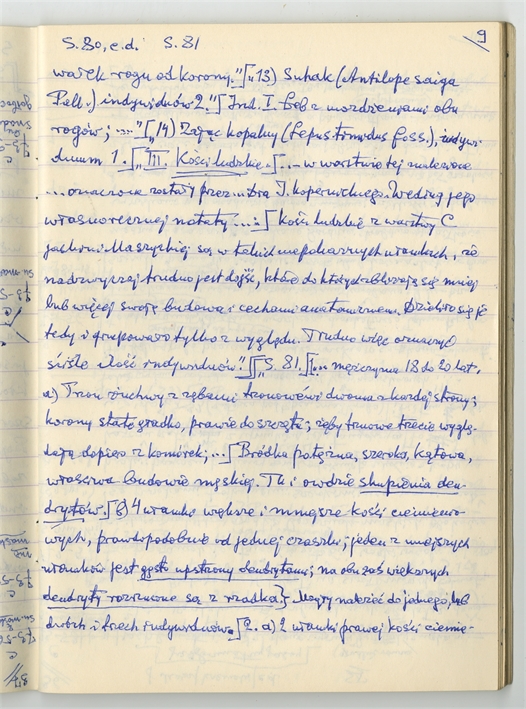 9
S. 80, c.d. S. 81
wałek rogu od korony."⟧„13) Suhak (Antilope saiga
Pall.) indywiduów 2."⟧ Ind. I. Łeb z możdżeniami obu
rogów; ...."⟧„14) Zając kopalny (Lepus timidus foss.), indywi-
duum 1.⟧„III. Kości ludzkie.⟧... w warstwie tej znalezione
... oznaczone zostały przez ... Dra I. Kopernickiego. Według jego
własnoręcznej notaty ...:⟧ Kości ludzkie z warstwy C
jaskini Maszyckiej są w takich niepokaźnych ułamkach, że
nadzwyczaj trudno jest dojść, które do których zbliżają się mniej
lub więcej swoją budową i cechami anatomicznemi. Dzieliło się je
tedy i grupowało tylko z wyglądu. Trudno więc oznaczyć
ściśle ilość indywiduów."⟧„S. 81.⟧I... mężczyzna 18 do 20 lat.
a) Trzon żuchwy z zębami trzonowemi dwoma z każdej strony;
korony starte gładko, prawie do szczętu; zęby trzonowe trzecie wyglą-
dają dopiero z komórek; ...⟧ Bródka potężna, szeroka, kątowa,
właściwa budowie męskiej. Tu i owdzie skupienia den-
drytów.⟧ b) 4 ułamki większe i mniejsze kości ciemienio-
wych, prawdopodobnie od jednej czaszki; jeden z mniejszych
ułamków jest gęsto upstrzony dendrytami; na obu zaś większych
dendryty rozrzucone są z rzadka} Mogły należeć do jednego, lub
dwóch i trzech indywiduów.⟧ 2. a) 2 ułamki prawej kości ciemie-